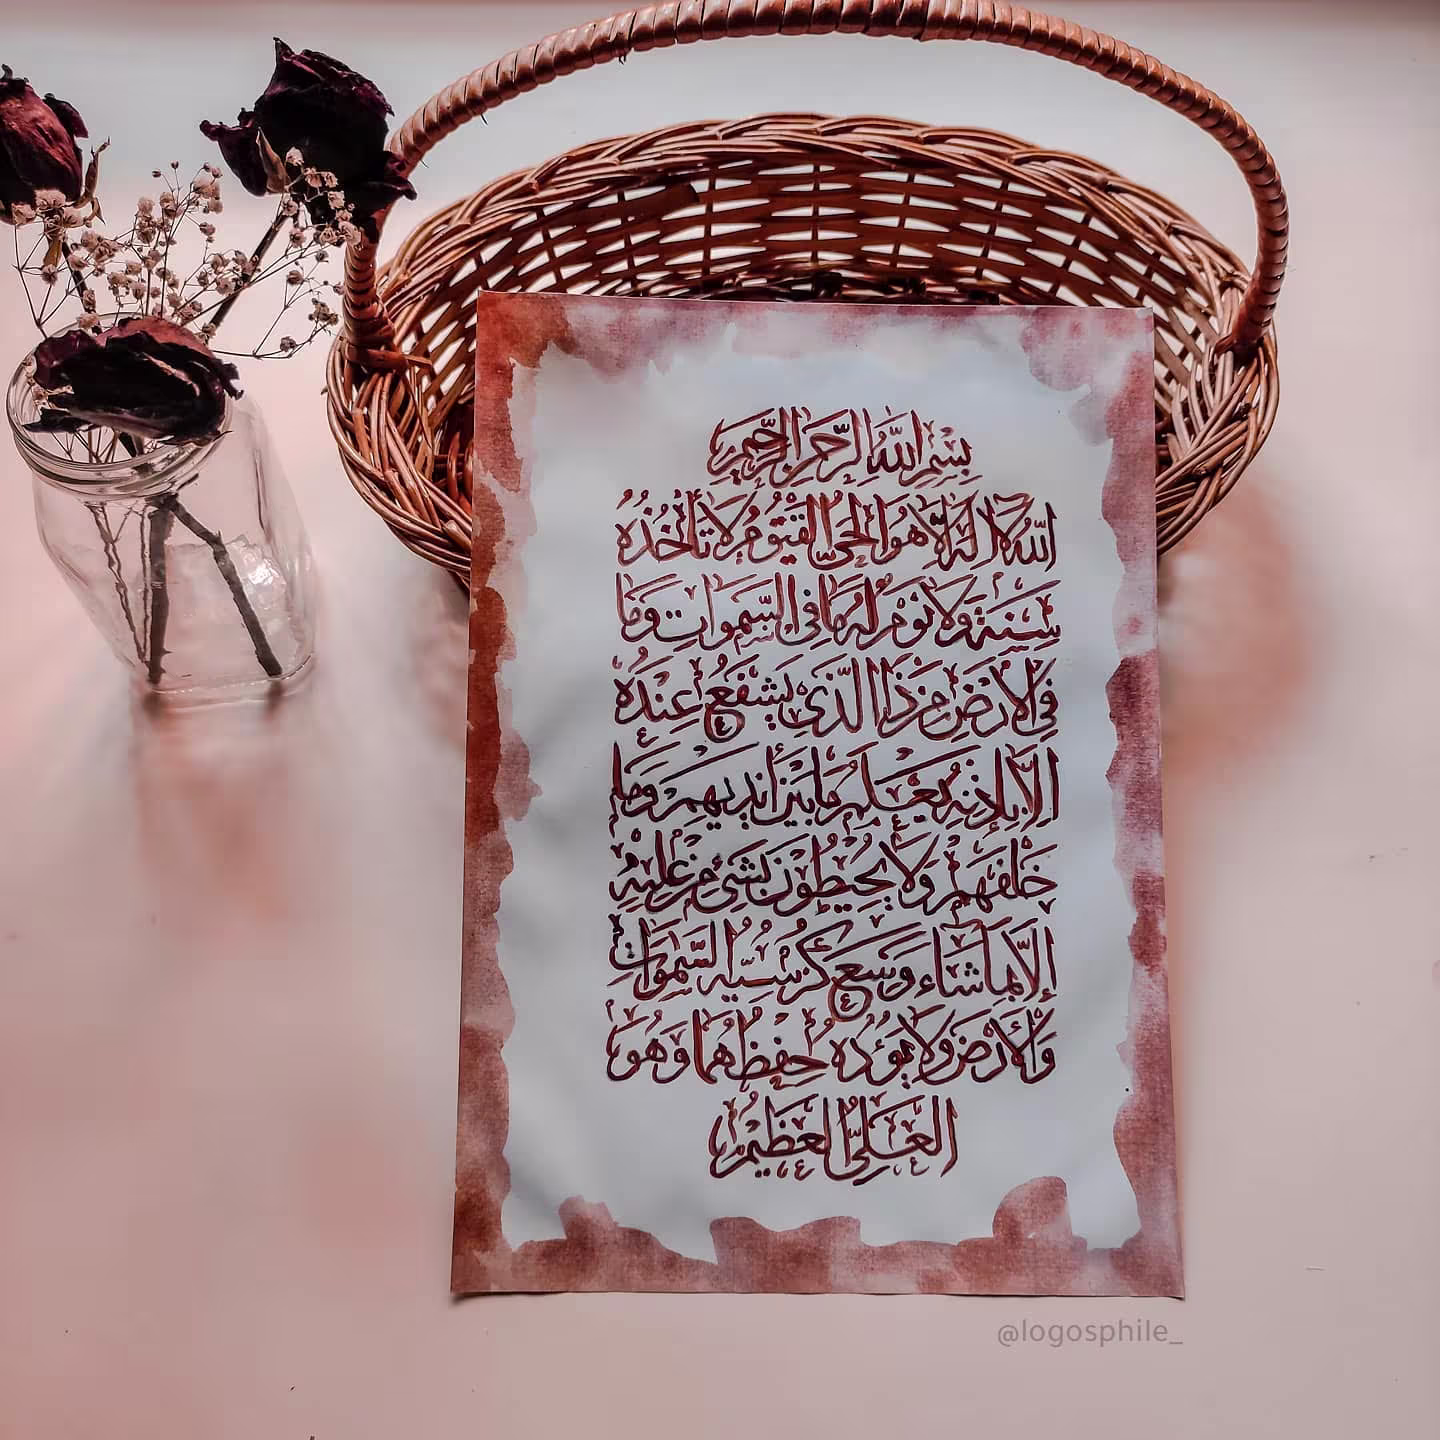 بِسْمِ اللَّهِ الرَّحْمَٰنِ الرَّحِيمِ
اللَّهُ لَا إِلَٰهَ إِلَّا هُوَ الْحَيُّ الْقَيُّومُ لَا تَأْخُذُهُ
سِنَةٌ وَلَا نَوْمٌ لَهُ مَا فِي السَّمَوَاتِ وَمَا
فِي الْأَرْضِ مَنْ ذَا الَّذِي يَشْفَعُ عِنْدَهُ
إِلَّا بِإِذْنِهِ يَعْلَمُ مَا بَيْنَ أَيْدِيهِمْ وَمَا
خَلْفَهُمْ وَلَا يُحِيطُونَ بِشَيْءٍ مِنْ عِلْمِهِ
إِلَّا بِمَا شَاءَ وَسِعَ كُرْسِيُّهُ السَّمَوَاتِ
وَالْأَرْضَ وَلَا يَؤُدُهُ حِفْظُهُمَا وَهُوَ
الْعَلِيُّ الْعَظِيمُ
@logosphile_